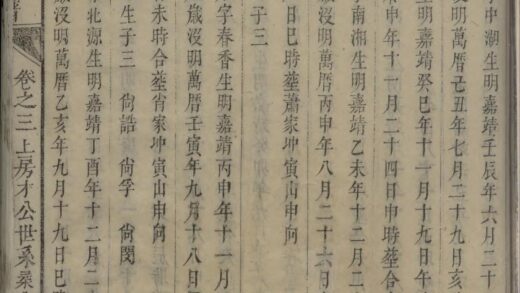 字中湖生明嘉靖壬辰年六月二十
明萬曆己丑年七月二十九日亥
生明嘉靖癸巳年十一月十九日午
申年十一月二十四日申時葬合
字南湖生明嘉靖乙未年十二月二
歿明萬曆丙申年八月二十六
日巳時葬蕭家坤寅山申向
子三
字春香生明嘉靖丙申年十一月
歲沒明萬曆壬寅年九月十八日
未時合葬肖家坤寅山申向
生子三 尙誥 尙孚 尙閔
字北源生明嘉靖丁酉年十二月二
歲沒明萬曆乙亥年九月十九日巳
卷之三 上房才公世系